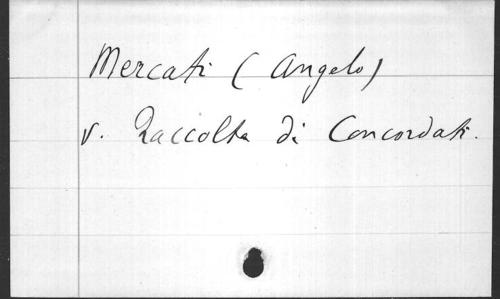 Mercati (Angelo)
v. Raccolta di Concordati.